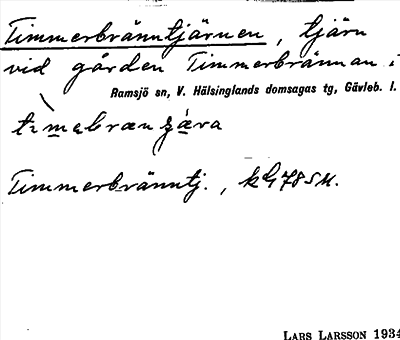 Timmerbränntjärnen, tjärn
vid gården Timmerbrännan.
Ramsjö sn, V. Hälsinglands domsagas tg, Gävleb. l.
Timmerbränntj., kG 78 SM.
LARS LARSSON 1934